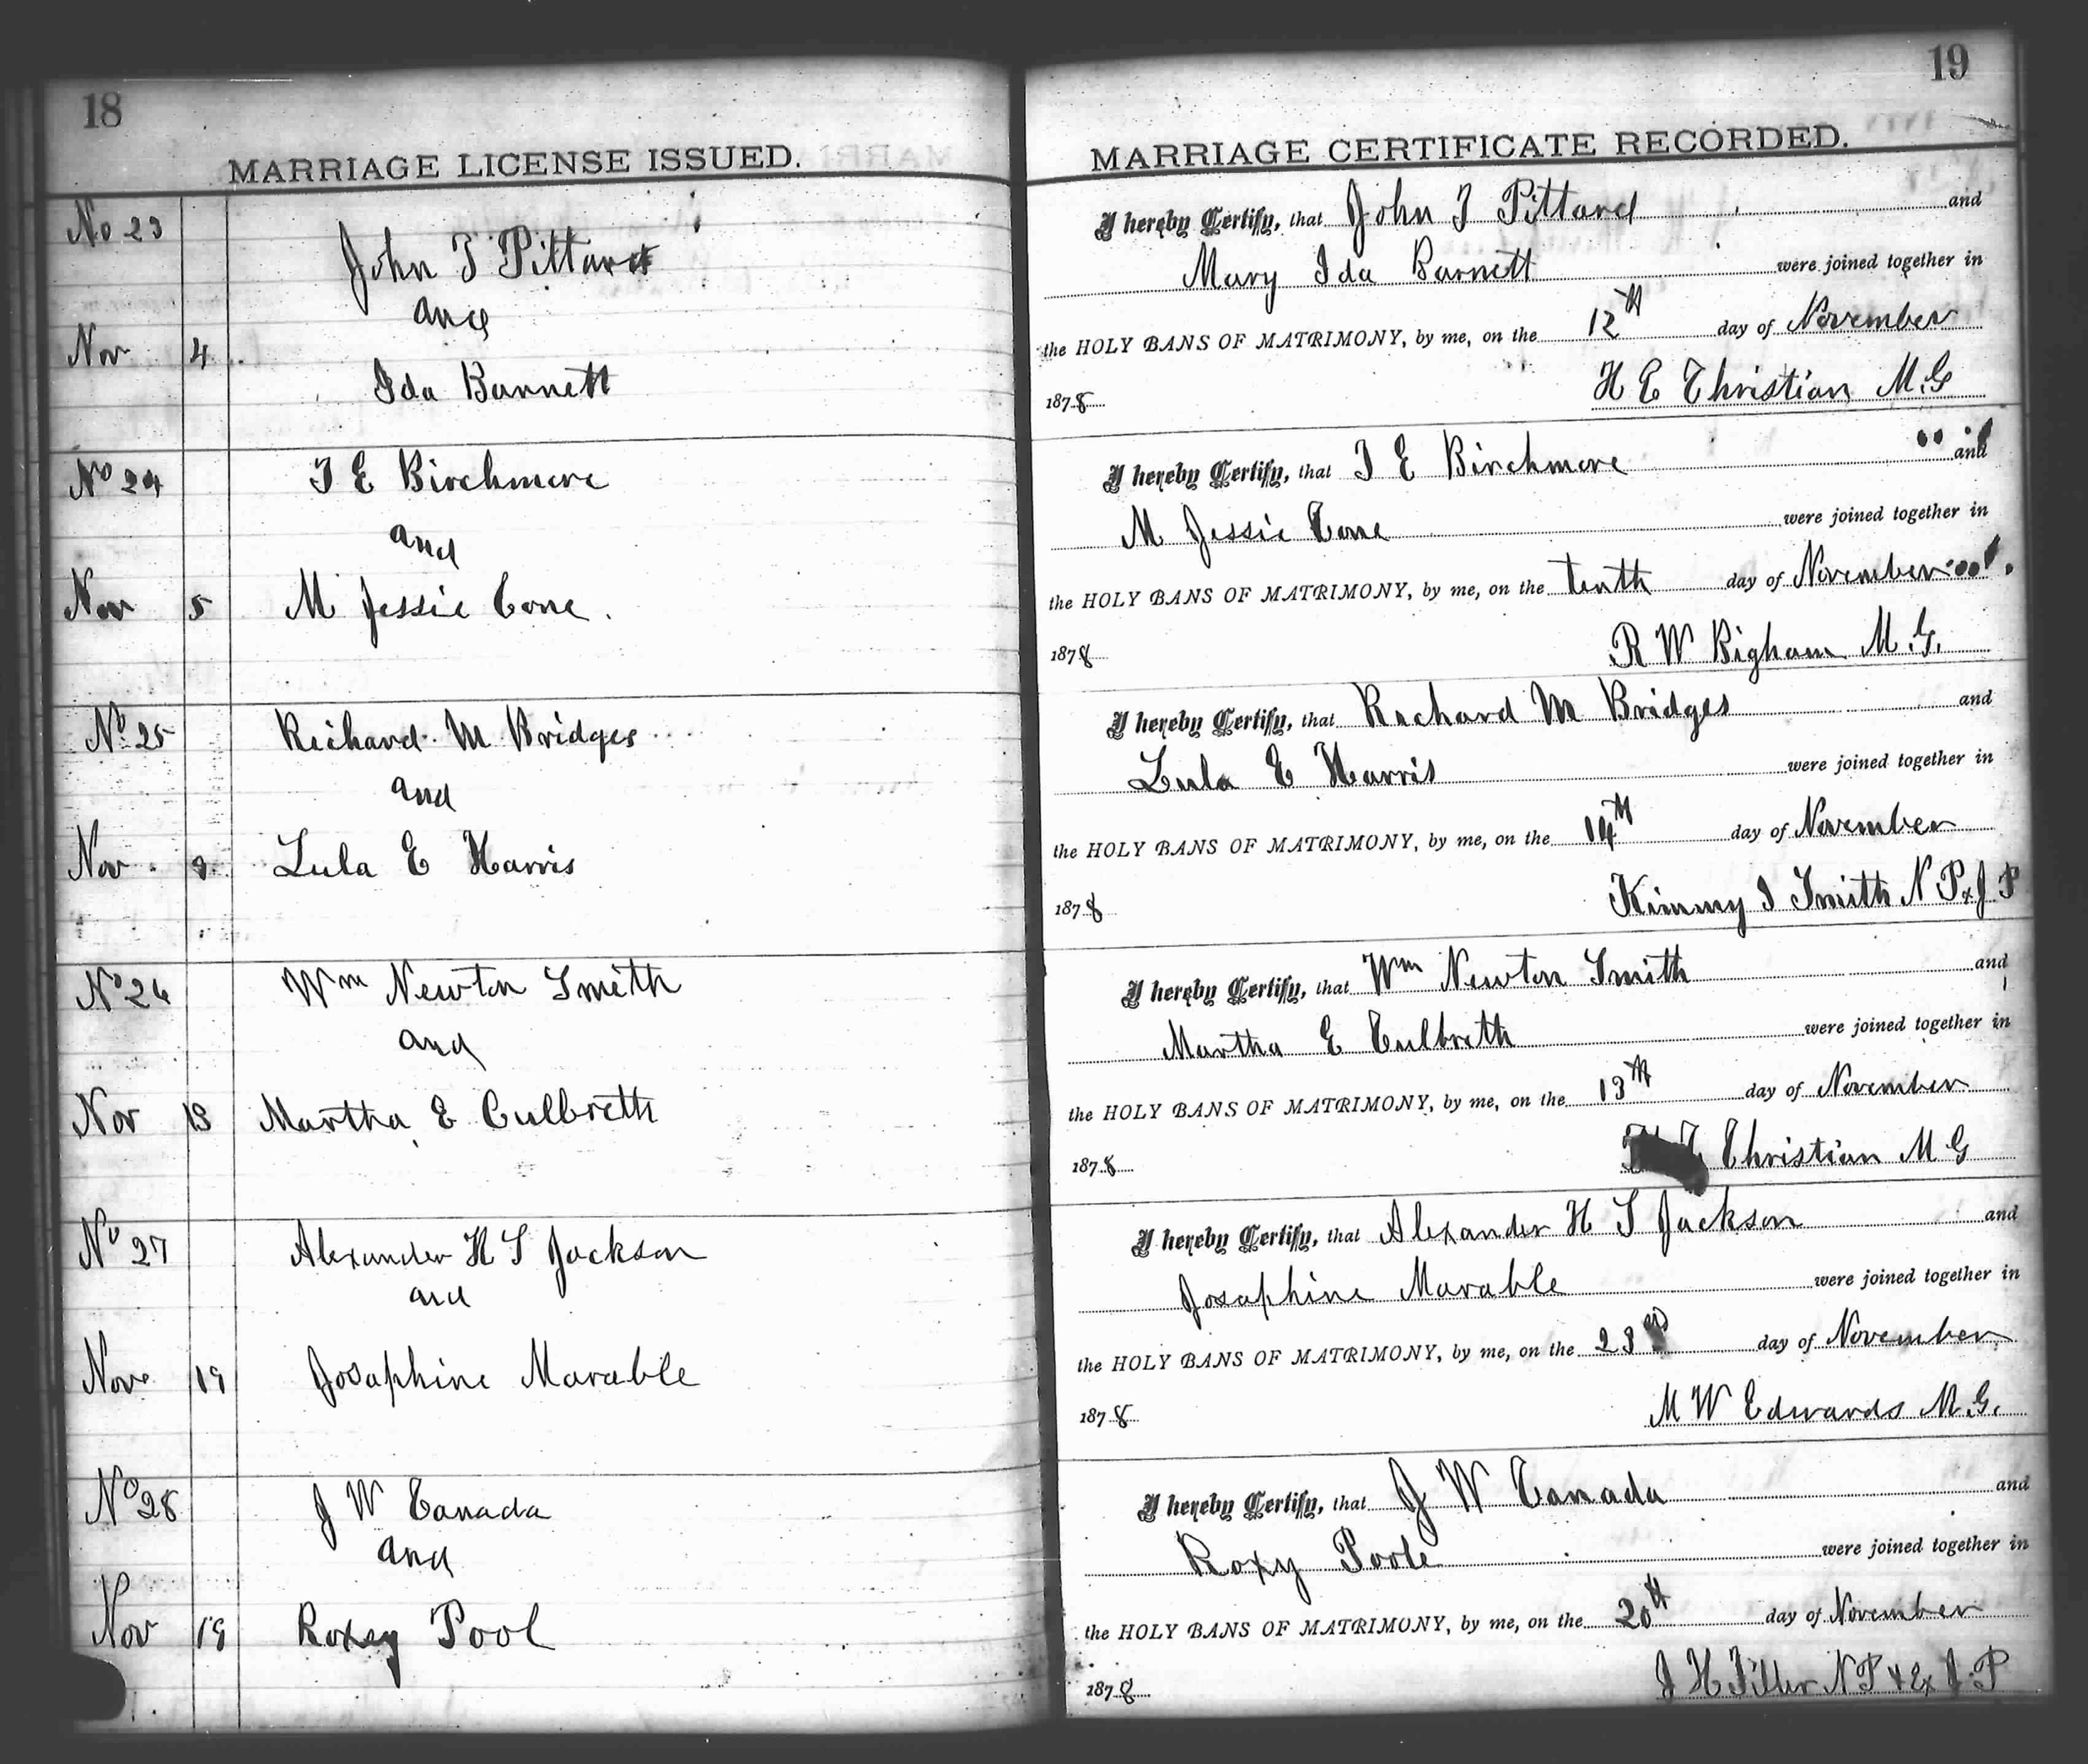 18
MARRIAGE LICENSE ISSUED.
No 23
John T Pittard
and
Nov 4
Ida Barnett
No 24
T E Birchmore
and
Nov 5
M Jessie Cone.
No 25
Richard M Bridges
and
Nov.
Lula E Harris
No 26
Wm Newton Smith
and
Nov 13
Martha E Culbreth
No 27
Alexander H S Jackson
and
Nov 19
Josaphine Marable
No 28
J W Canada
and
Nov 19
Roxey Pool
19
MARRIAGE CERTIFICATE RECORDED.
I hereby Certify, that John T Pittard and
Mary Ida Barnett were joined together in
the HOLY BANS OF MATRIMONY, by me, on the 12th day of November
1878 H E Christian M.G
I hereby Certify, that T E Birchmore and
M Jessie Cone were joined together in
the HOLY BANS OF MATRIMONY, by me, on the tenth day of November
1878 R W Bigham M.G.
I hereby Certify, that Richard M Bridges and
Lula E Harris were joined together in
the HOLY BANS OF MATRIMONY, by me, on the 14th day of November
1878 Kimmy I Smith N P & J P
I hereby Certify, that Wm Newton Smith and
Martha E Culbreth were joined together in
the HOLY BANS OF MATRIMONY, by me, on the 13th day of November
1878 Christian M G
I hereby Certify, that Alexander H S Jackson and
Josaphine Marable were joined together in
the HOLY BANS OF MATRIMONY, by me, on the 23rd day of November
1878 M W Edwards M.G.
I hereby Certify, that J W Canada and
Roxy Poole were joined together in
the HOLY BANS OF MATRIMONY, by me, on the 20th day of November
1878 J H Tiller N P & Ex J.P